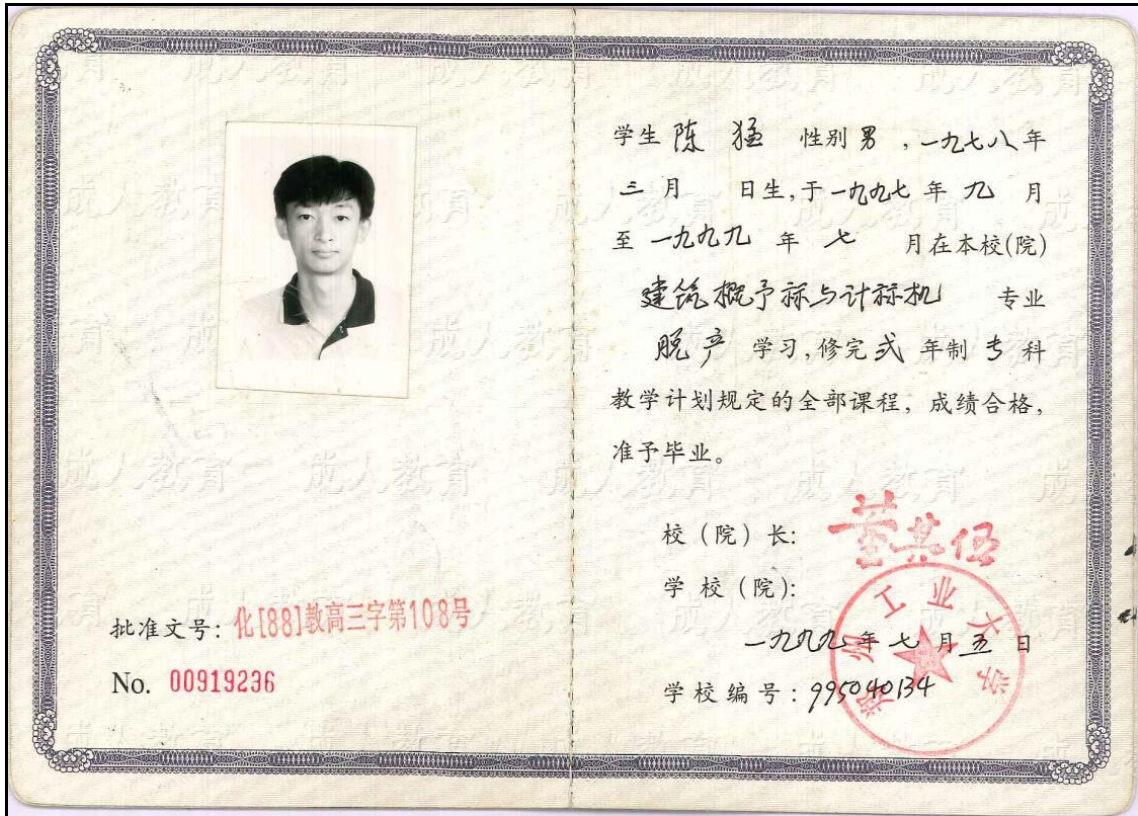 批准文号：化[88]教高三字第108号
No. 00919236
学生 陈猛 性别 男，一九七八年
三月 日生，于一九九七年九月
至一九九九年七月在本校(院)
建筑概予标与计标机 专业
脱产 学习，修完弍年制专科
教学计划规定的全部课程，成绩合格，
准予毕业。
校（院）长：董其伍
学校（院）：
工业大学
一九九九年七月五日
学校编号：995040134
成人教育